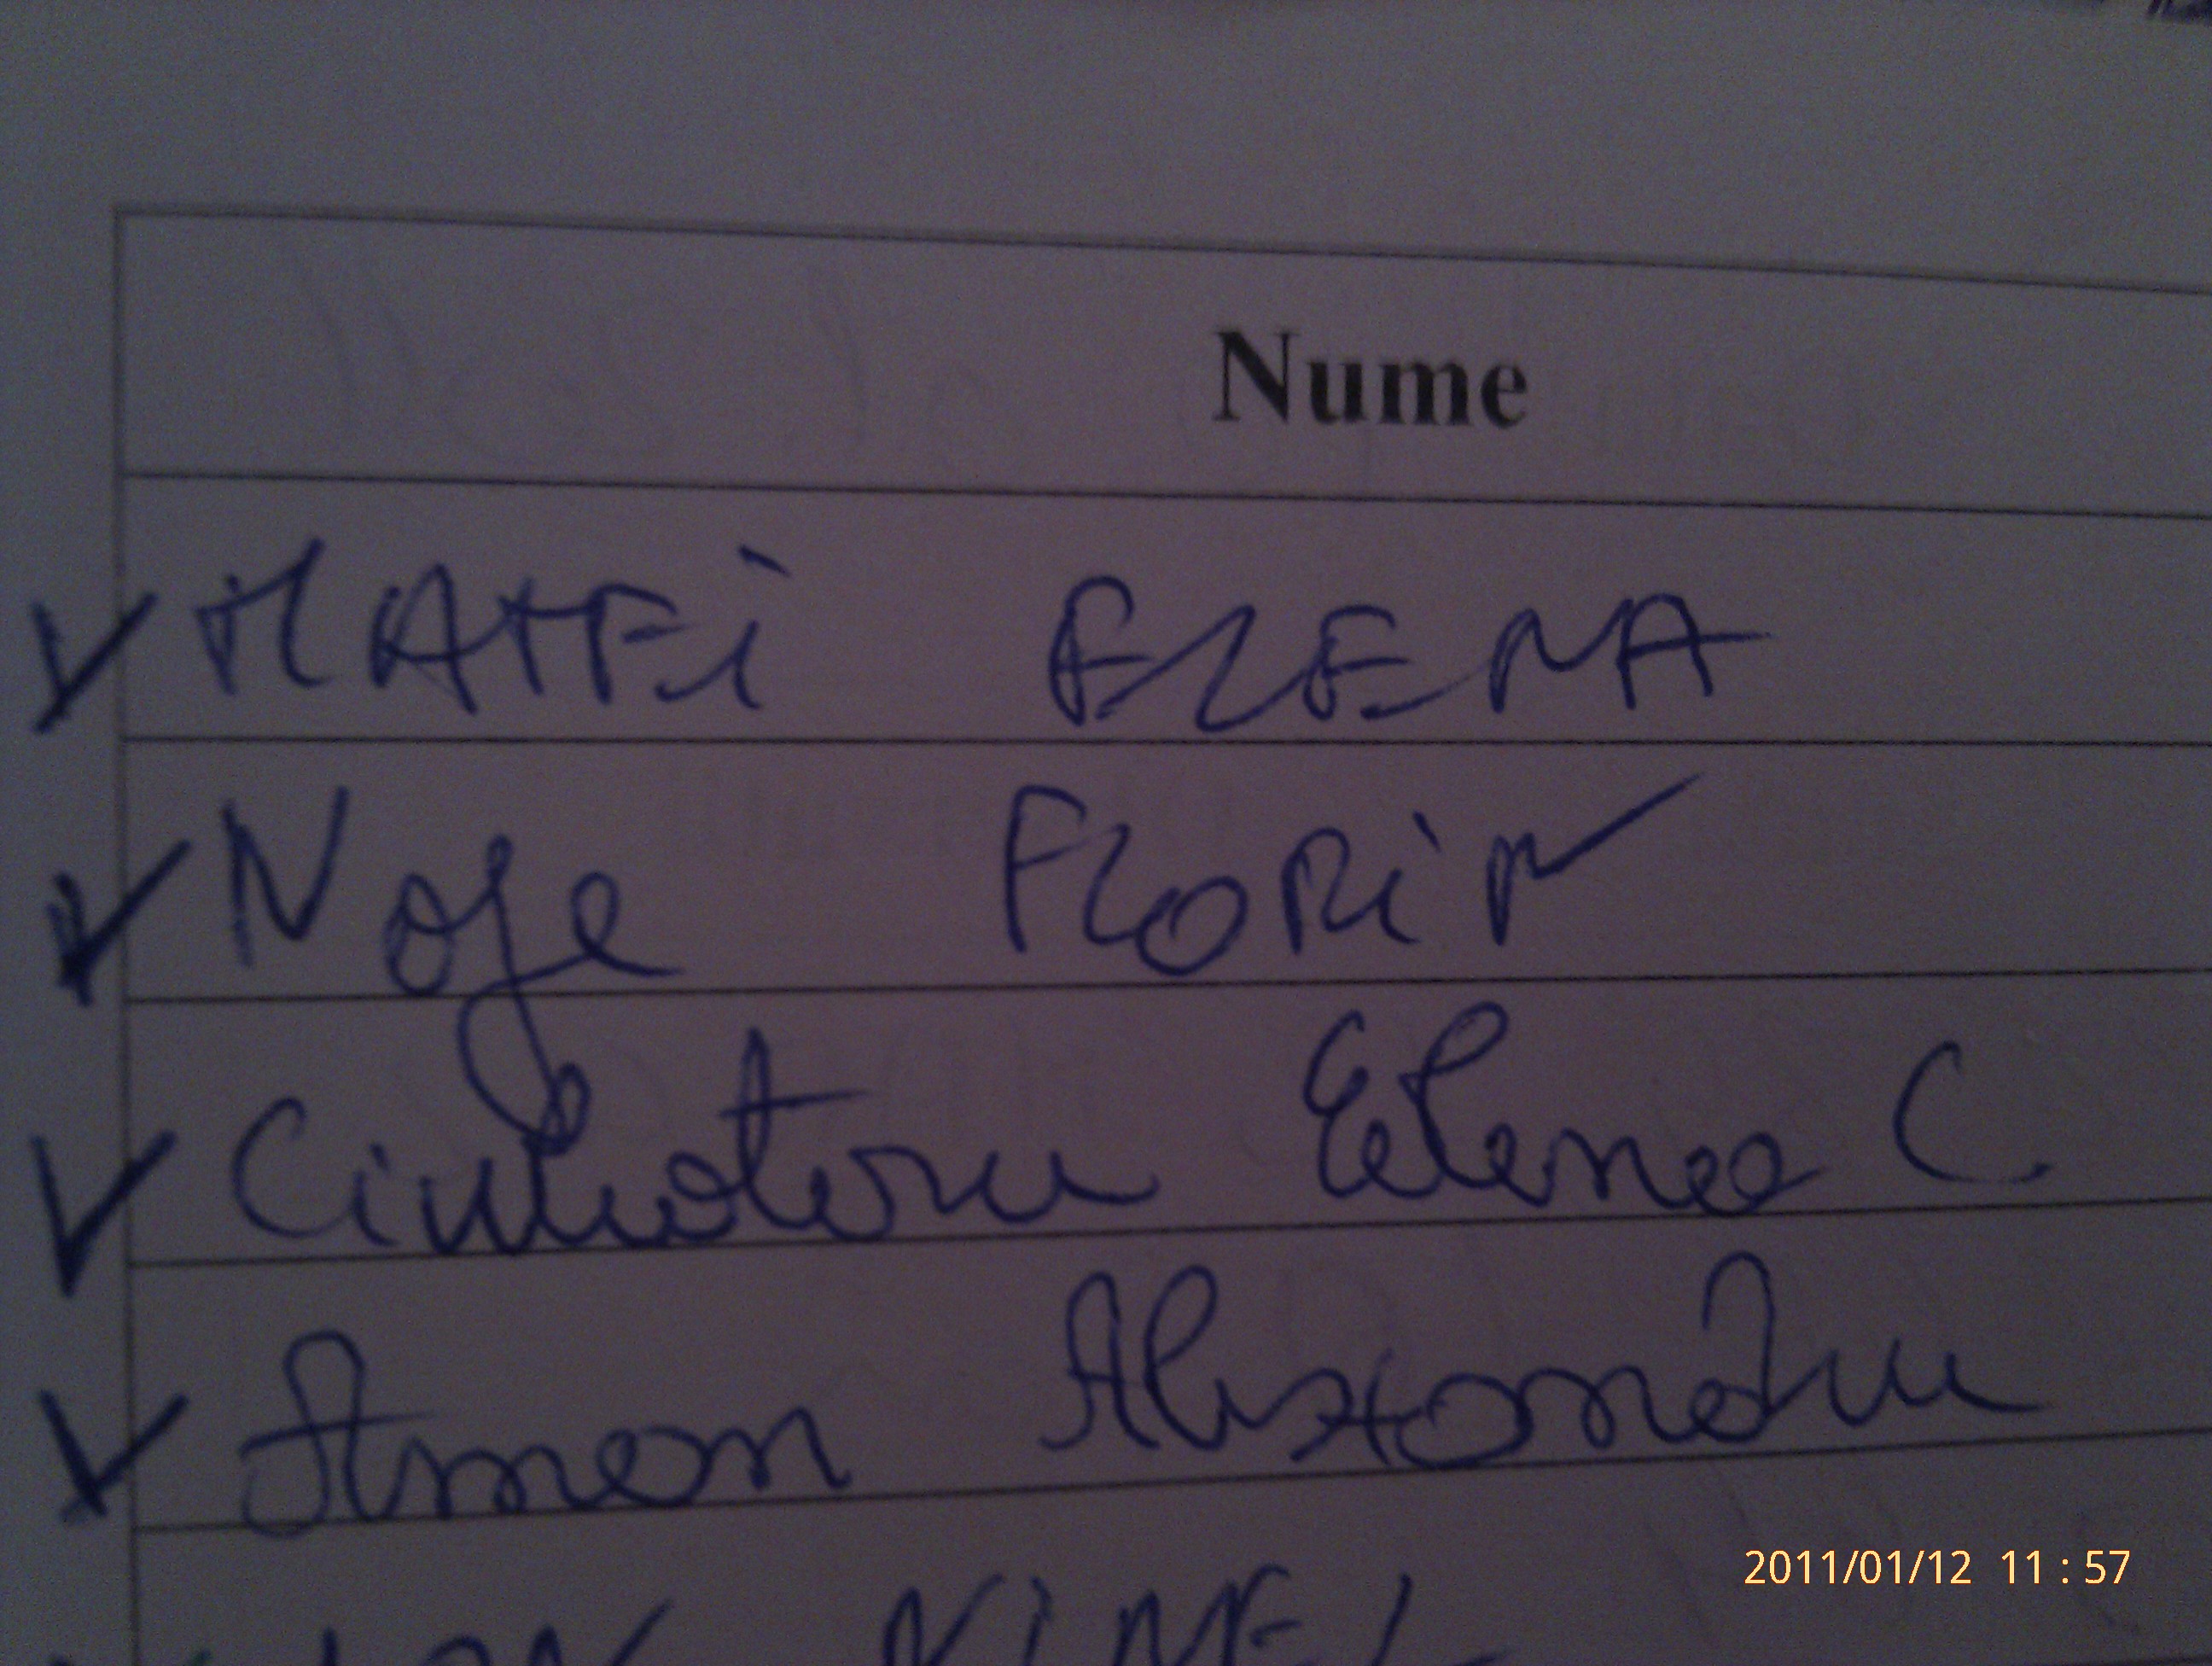 Nume
MATEi ELENA
Noje FLORiN
Elena C.
Aman Alexandru
NiNEL
2011/01/12 11:57